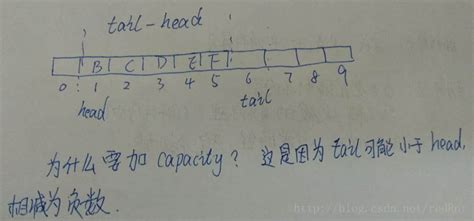 tail-head
B C D E F
0 1 2 3 4 5 6 7 8 9
head tail
为什么要加 capacity? 这是因为 tail 可能小于 head,
相减为负数.